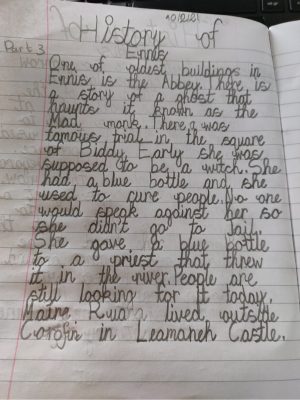 History of
Ennis
Part 3
One of oldest buildings in
Ennis is the Abbey. There is
a story of a ghost that
haunts it known as the
Mad monk. There a was
famous trial in the square
of Biddy Early she was
supposed to be a witch. She
had a blue bottle and she
used to cure people. No one
would speak against her so
she didn't go to Jail.
She gave a blue bottle
to a priest that threw
it in the river. People are
still looking for it today.
Maire Rua lived outside
Corofin in Leamaneh Castle.